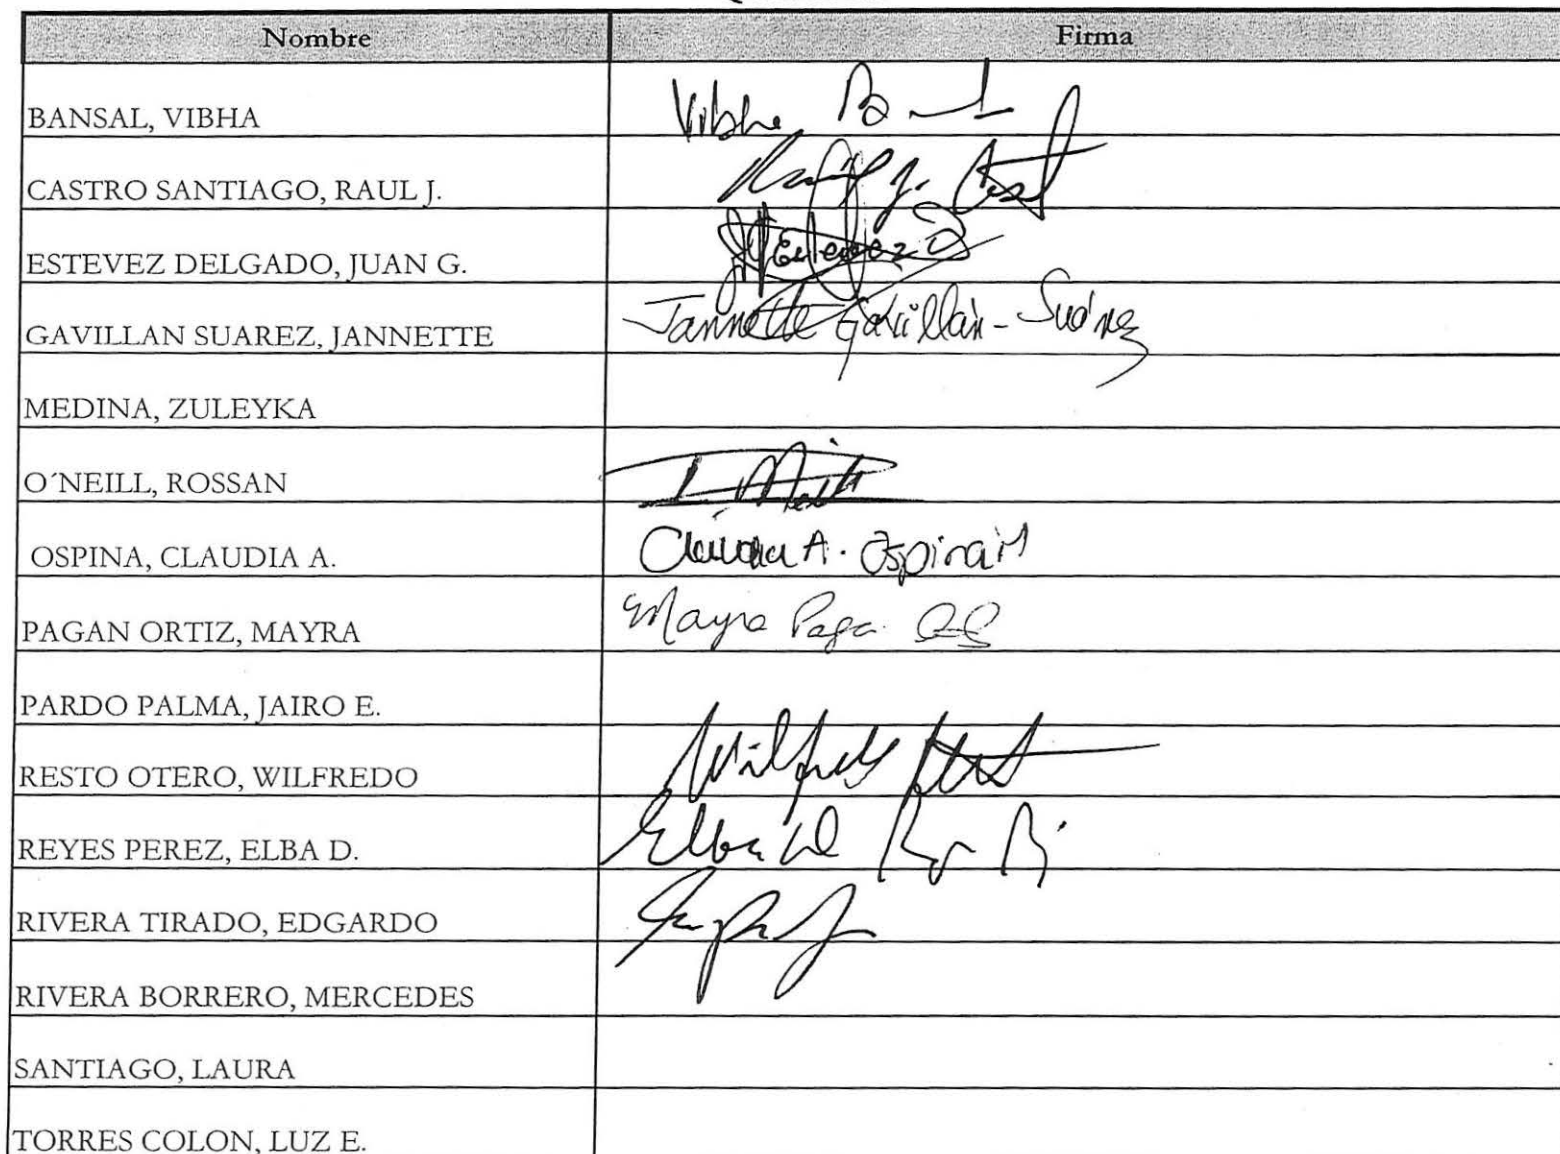 Nombre Firma
BANSAL, VIBHA Vibha
CASTRO SANTIAGO, RAUL J.
ESTEVEZ DELGADO, JUAN G.
GAVILLAN SUAREZ, JANNETTE Jannette Gavillán-Suárez
MEDINA, ZULEYKA
O´NEILL, ROSSAN
OSPINA, CLAUDIA A. Claudia A. Ospina M
PAGAN ORTIZ, MAYRA Mayra
PARDO PALMA, JAIRO E.
RESTO OTERO, WILFREDO
REYES PEREZ, ELBA D. Elba
RIVERA TIRADO, EDGARDO
RIVERA BORRERO, MERCEDES
SANTIAGO, LAURA
TORRES COLON, LUZ E.